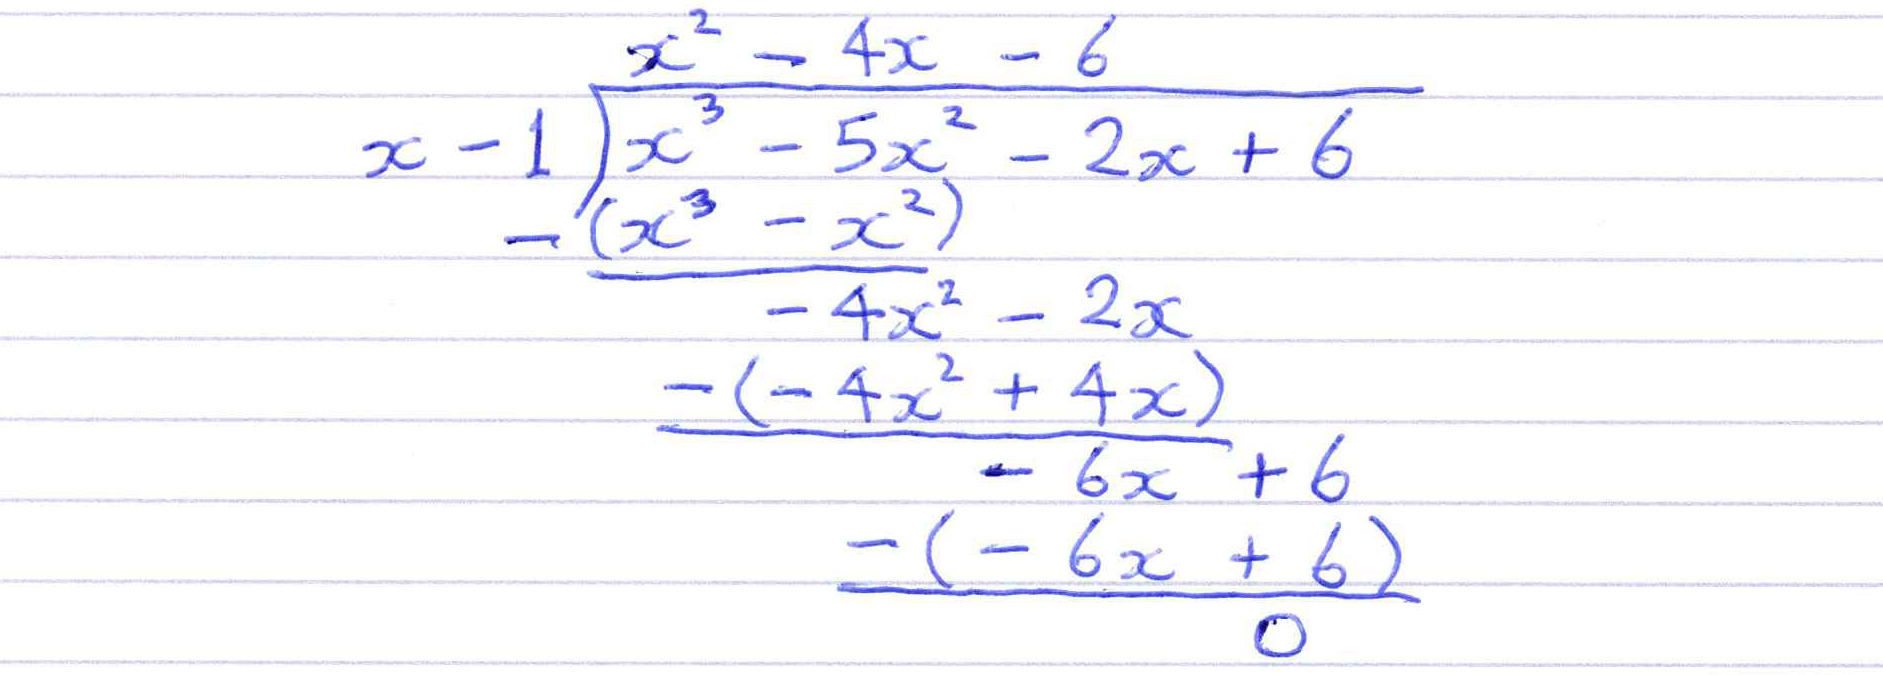 x² - 4x - 6
x - 1 ) x³ - 5x² - 2x + 6
- (x³ - x²)
- 4x² - 2x
- (- 4x² + 4x)
- 6x + 6
- (- 6x + 6)
0